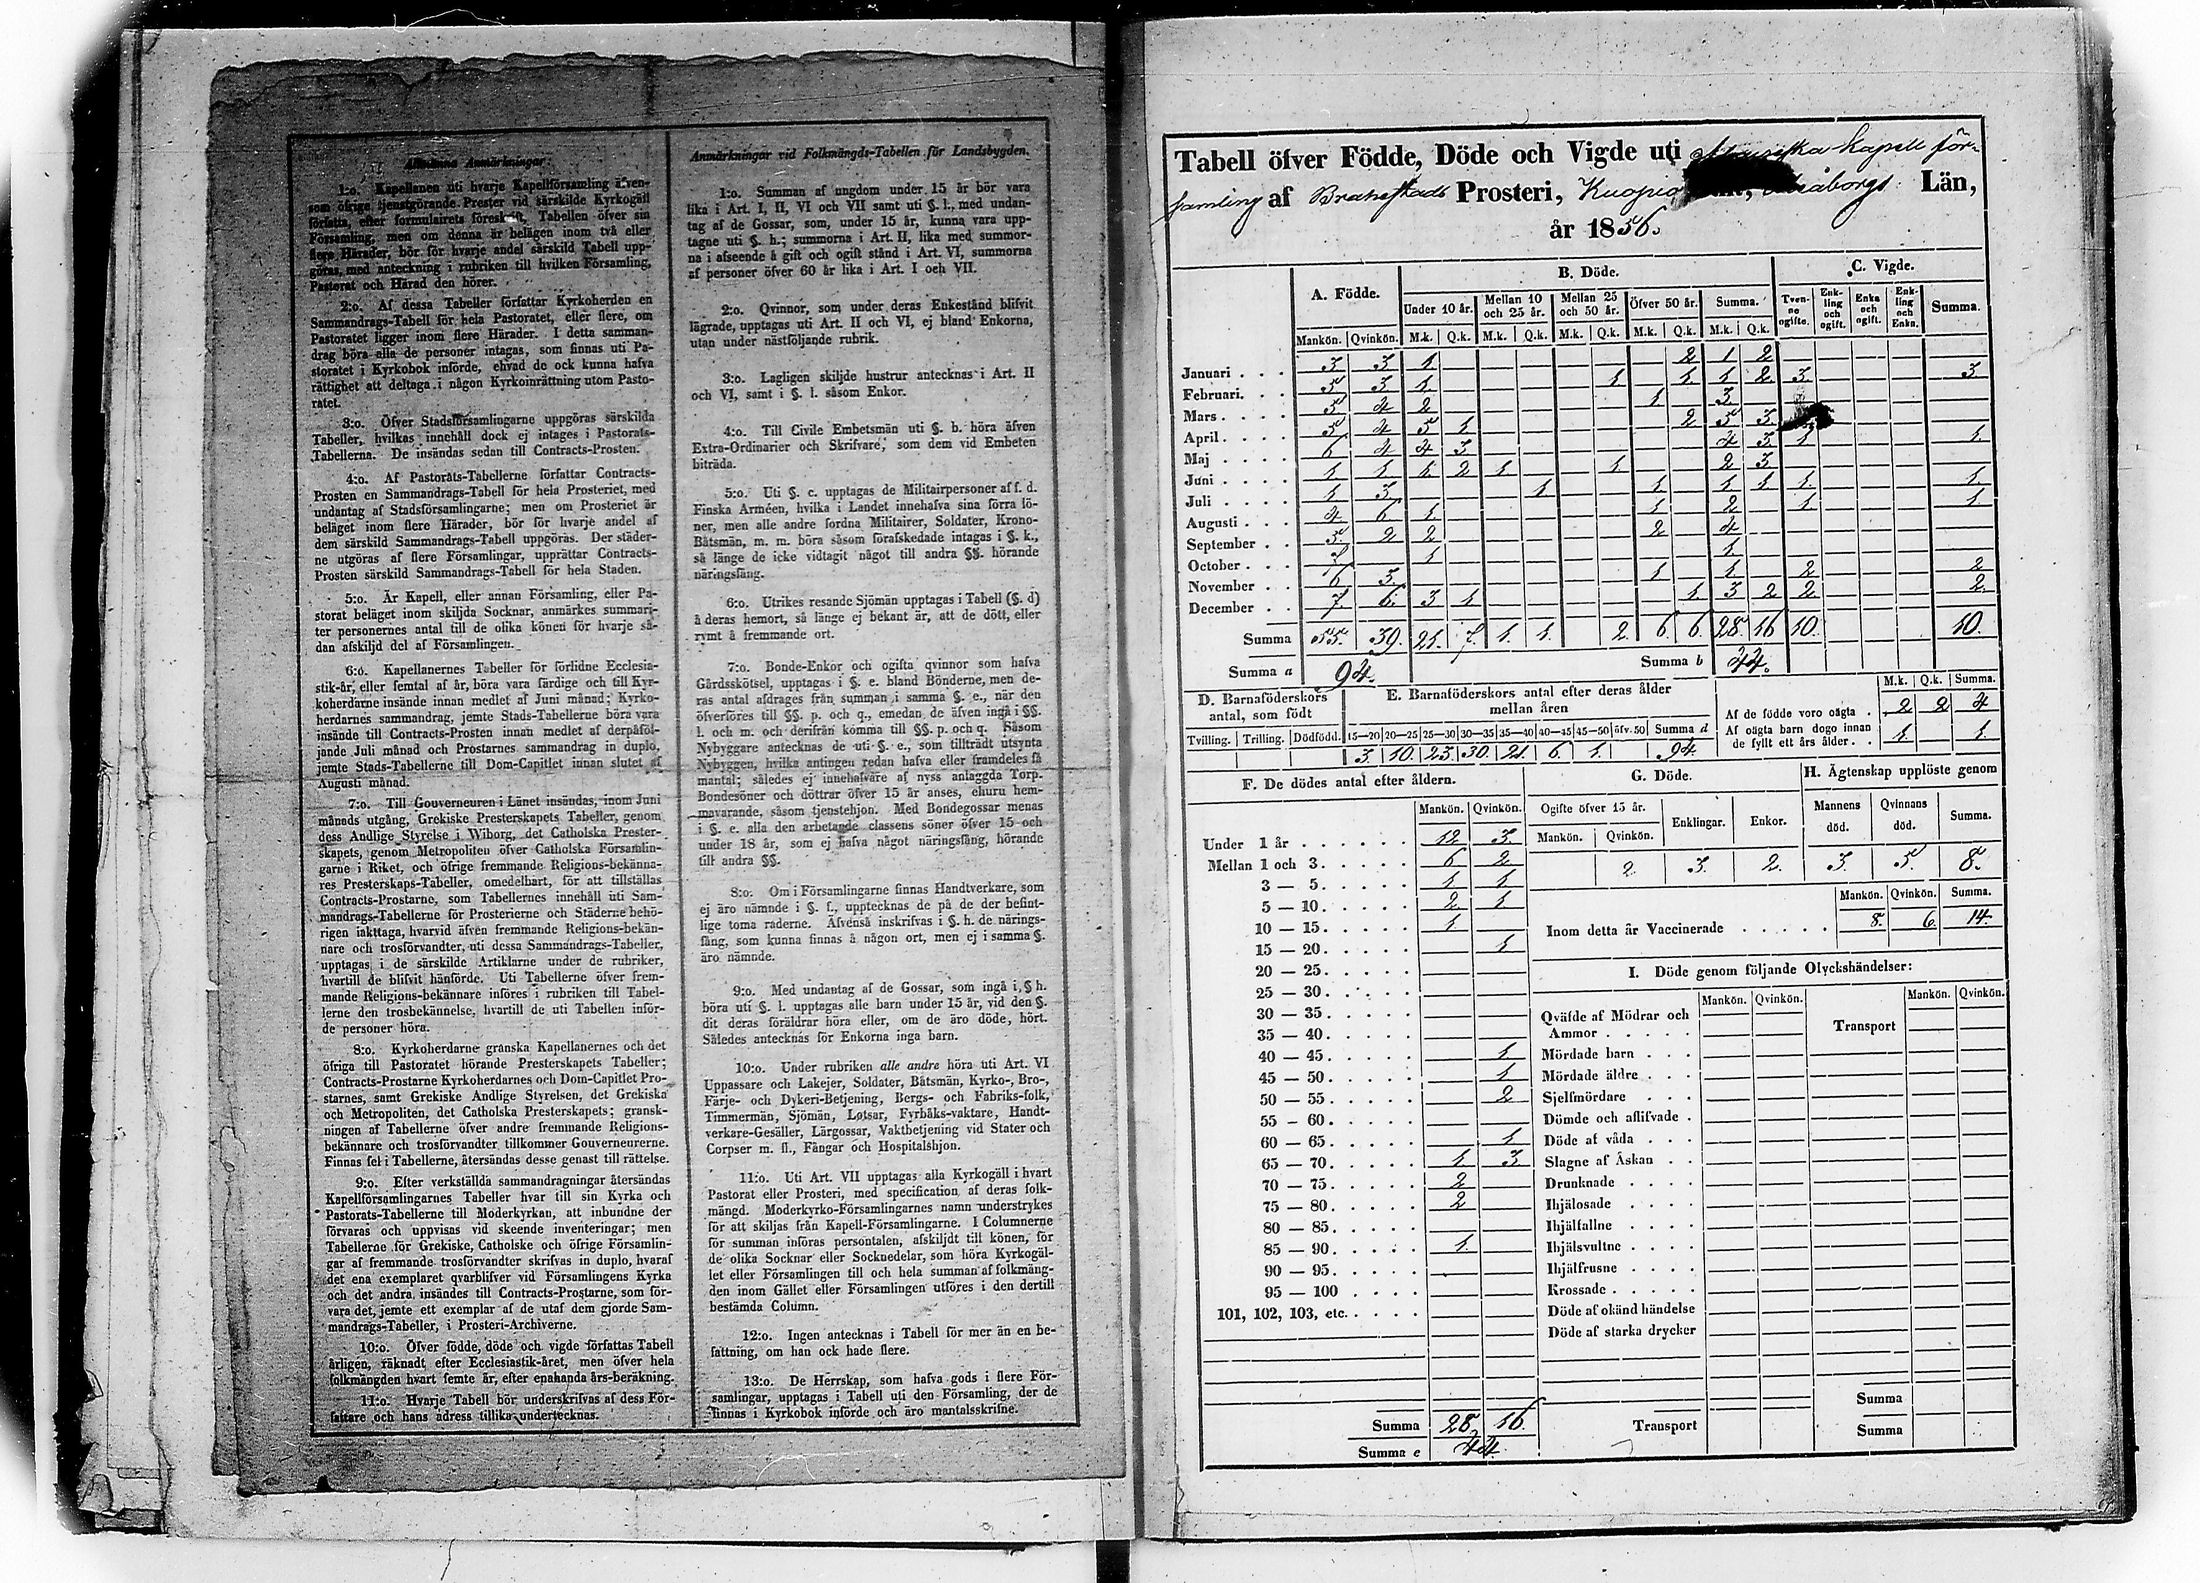 Allmänna Anmärkningar:
1:o. Kapellanen uti hvarje Kapellförsamling äfven-
som öfrige tjenstgörande Prester vid särskilde Kyrkogäll
författa, efter formulairets föreskrift, Tabellen öfver sin
Församling, men om denna är belägen inom två eller
flere Härader, bör för hvarje andel särskild Tabell upp-
göras, med anteckning i rubriken till hvilken Församling,
Pastorat och Härad den hörer.
2:o. Af dessa Tabeller författar Kyrkoherden en
Sammandrags-Tabell för hela Pastoratet, eller flere, om
Pastoratet ligger inom flere Härader. I detta samman-
drag böra alla de personer intagas, som finnas uti Pa-
storatet i Kyrkobok införde, ehvad de ock kunna hafva
rättighet att deltaga i någon Kyrkoinrättning utom Pasto-
ratet.
3:o. Öfver Stadsförsamlingarne uppgöras särskilda
Tabeller, hvilkas innehåll dock ej intages i Pastorats-
Tabellerna. De insändas sedan till Contracts-Prosten.
4:o. Af Pastorats-Tabellerne författar Contracts-
Prosten en Sammandrags-Tabell för hela Prosteriet, med
undantag af Stadsförsamlingarne; men om Prosteriet är
beläget inom flere Härader, bör för hvarje andel af
dem särskild Sammandrags-Tabell uppgöras. Der städer-
ne utgöras af flere Församlingar, upprättar Contracts-
Prosten särskild Sammandrags-Tabell för hela Staden.
5:o. Är Kapell, eller annan Församling, eller Pa-
storat beläget inom skiljda Socknar, anmärkes summari-
ter personernes antal till de olika könen för hvarje så-
dan afskiljd del af Församlingen.
6:o. Kapellanernes Tabeller för förlidne Ecclesia-
stik-år, eller femtal af år, böra vara färdige och till Kyr-
koherdarne insände innan medlet af Juni månad; Kyrko-
herdarnes sammandrag, jemte Stads-Tabellerne böra vara
insände till Contracts-Prosten innan medlet af derpåföl-
jande Juli månad och Prostarnes sammandrag in duplo,
jemte Stads-Tabellerne till Dom-Capitlet innan slutet af
Augusti månad.
7:o. Till Gouverneuren i Länet insändas, inom Juni
månads utgång, Grekiske Presterskapets Tabeller, genom
dess Andlige Styrelse i Wiborg, det Catholska Prester-
skapets, genom Metropoliten öfver Catholska Församlin-
garne i Riket, och öfrige fremmande Religions-bekänna-
res Presterskaps-Tabeller, omedelbart, för att tillställas
Contracts-Prostarne, som Tabellernes innehåll uti Sam-
mandrags-Tabellerne för Prosterierne och Städerne behö-
rigen iakttaga, hvarvid äfven fremmande Religions-bekän-
nare och trosförvandter, uti dessa Sammandrags-Tabeller,
upptagas i de särskilde Artiklarne under de rubriker,
hvartill de blifvit hänförde. Uti Tabellerne öfver frem-
mande Religions-bekännare införes i rubriken till Tabel-
lerne den trosbekännelse, hvartill de uti Tabellen inför-
de personer höra.
8:o. Kyrkoherdarne granska Kapellanernes och det
öfriga till Pastoratet hörande Presterskapets Tabeller;
Contracts-Prostarne Kyrkoherdarnes och Dom-Capitlet Pro-
starnes, samt Grekiske Andlige Styrelsen, det Grekiska
och Metropoliten, det Catholska Presterskapets; gransk-
ningen af Tabellerne öfver andre fremmande Religions-
bekännare och trosförvandter tillkommer Gouverneurerne.
Finnas fel i Tabellerne, återsändas desse genast till rättelse.
9:o. Efter verkställda sammandragningar återsändas
Kapellförsamlingarnes Tabeller hvar till sin Kyrka och
Pastorats-Tabellerne till Moderkyrkan, att inbundne der
förvaras och uppvisas vid skeende inventeringar; men
Tabellerne för Grekiske, Catholske och öfrige Församlin-
gar af fremmande trosförvandter skrifvas in duplo, hvaraf
det ena exemplaret qvarblifver vid Församlingens Kyrka
och det andra insändes till Contracts-Prostarne, som för-
vara det, jemte ett exemplar af de utaf dem gjorde Sam-
mandrags-Tabeller, i Prosteri-Archiverne.
10:o. Öfver födde, döde och vigde författas Tabell
årligen, räknadt efter Ecclesiastik-året, men öfver hela
folkmängden hvart femte år, efter epahanda års-beräkning.
11:o. Hvarje Tabell bör underskrifvas af dess För-
fattare och hans adress tillika undertecknas.
Anmärkningar vid Folkmängds-Tabellen för Landsbygden.
1:o. Summan af ungdom under 15 år bör vara
lika i Art. I, II, VI och VII samt uti §. l., med undan-
tag af de Gossar, som, under 15 år, kunna vara upp-
tagne uti §. h.; summorna i Art. II, lika med summor-
na i afseende å gift och ogift stånd i Art. VI, summorna
af personer öfver 60 år lika i Art. I och VII.
2:o. Qvinnor, som under deras Enkestånd blifvit
lägrade, upptagas uti Art. II och VI, ej bland Enkorna,
utan under nästföljande rubrik.
3:o. Lagligen skiljde hustrur antecknas i Art. II
och VI, samt i §. l. såsom Enkor.
4:o. Till Civile Embetsmän uti §. b. höra äfven
Extra-Ordinarier och Skrifvare, som dem vid Embeten
biträda.
5:o. Uti §. c. upptagas de Militairpersoner af f. d.
Finska Arméen, hvilka i Landet innehafva sina förra lö-
ner, men alle andre fordna Militairer, Soldater, Krono-
Båtsmän, m. m. böra såsom förafskedade intagas i §. k.,
så länge de icke vidtagit något till andra §§. hörande
näringsfång.
6:o. Utrikes resande Sjömän upptagas i Tabell (§. d)
å deras hemort, så länge ej bekant är, att de dött, eller
rymt å fremmande ort.
7:o. Bonde-Enkor och ogifta qvinnor som hafva
Gårdsskötsel, upptagas i §. e. bland Bönderne, men de-
ras antal afdrages från summan i samma §. e., när den
öfverföres till §§. p. och q., emedan de äfven ingå i §§.
l. och m. och derifrån komma till §§. p. och q. Såsom
Nybyggare antecknas de uti §. e., som tillträdt utsynta
Nybyggen, hvilka antingen redan hafva eller framdeles få
mantal; således ej innehafvare af nyss anlaggda Torp.
Bondesöner och döttrar öfver 15 år anses, ehuru hem-
mavarande, såsom tjenstehjon. Med Bondegossar menas
i §. e. alla den arbetande classens söner öfver 15 och
under 18 år, som ej hafva något näringsfång, hörande
till andra §§.
8:o. Om i Församlingarne finnas Handtverkare, som
ej äro nämnde i §. f., upptecknas de på de der befint-
lige toma raderne. Äfvenså inskrifvas i §. h. de närings-
fång, som kunna finnas å någon ort, men ej i samma §.
äro nämnde.
9:o. Med undantag af de Gossar, som ingå i, § h.
böra uti §. l. upptagas alle barn under 15 år, vid den §.
dit deras föräldrar höra eller, om de äro döde, hört.
Således antecknas för Enkorna inga barn.
10:o. Under rubriken alle andre höra uti Art. VI
Uppassare och Lakejer, Soldater, Båtsmän, Kyrko-, Bro-,
Färje- och Dykeri-Betjening, Bergs- och Fabriks-folk,
Timmermän, Sjömän, Lotsar, Fyrbåks-vaktare, Handt-
verkare-Gesäller, Lärgossar, Vaktbetjening vid Stater och
Corpser m. fl., Fångar och Hospitalshjon.
11:o. Uti Art. VII upptagas alla Kyrkogäll i hvart
Pastorat eller Prosteri, med specification af deras folk-
mängd. Moderkyrko-Församlingarnes namn understrykes
för att skiljas från Kapell-Församlingarne. I Columnerne
för summan införas persontalen, afskiljdt till könen, för
de olika Socknar eller Socknedelar, som höra Kyrkogäl-
let eller Församlingen till och hela summan af folkmäng-
den inom Gället eller Församlingen utföres i den dertill
bestämda Column.
12:o. Ingen antecknas i Tabell för mer än en be-
fattning, om han ock hade flere.
13:o. De Herrskap, som hafva gods i flere För-
samlingar, upptagas i Tabell uti den Församling, der de
finnas i Kyrkobok införde och äro mantalsskrifne.
Tabell öfver Födde, Döde och Vigde uti Kapell för-
samling af Brahestads Prosteri, Kuopio Uleåborgs Län,
år 1856.
A. Födde. B. Döde. C. Vigde.
Under 10 år. Mellan 10 och 25 år. Mellan 25 och 50 år. Öfver 50 år. Summa. Tvenne ogifte. Enkling och ogift. Enka och ogift. Enkling och Enka. Summa.
Mankön. Qvinkön. M.k. Q.k. M.k. Q.k. M.k. Q.k. M.k. Q.k. M.k. Q.k.
Januari . . . 3 3 1 2 1 2
Februari. . . 5 3 1 1 1 1 2 3. 3
Mars . . . 5 4 2 1 3
April. . . . 5 4 5 1 2 5 3
Maj . . . . 6 4 4 3 4 3 1 1.
Juni . . . . 1 1 1 2 1 1 2 3
Juli . . . . 1 3 1 1 1 1 1. 1.
Augusti . . . 4 6 1 1 2 1 1
September . . 5. 2 2 2 4
October . . . 7 1 1.
November . . . 6 3. 1 1 2 2
December . . 7. 6. 3 1 1. 3 2 2 2.
Summa 55. 39. 21. 7. 1. 1. 2. 6. 6. 28 16 10. 10.
Summa a 94. Summa b 44.
D. Barnaföderskors antal, som födt
E. Barnaföderskors antal efter deras ålder mellan åren
M.k. Q.k. Summa.
Af de födde voro oägta . 2 2 4
Af oägta barn dogo innan
de fyllt ett års ålder . . 1. 1
Tvilling. Trilling. Dödfödd. 15—20 20—25 25—30 30—35 35—40 40—45 45—50 öfv. 50 Summa d
3. 10. 23. 30. 21. 6. 1. 94.
F. De dödes antal efter åldern.
Mankön. Qvinkön.
Under 1 år . . . . . . 12 3.
Mellan 1 och 3. . . . . 6 2
3 — 5. . . . . 1 1
5 — 10. . . . . 2 1
10 — 15. . . . . 1
15 — 20. . . . . 1
20 — 25. . . . .
25 — 30. . . . .
30 — 35. . . . .
35 — 40. . . . .
40 — 45. . . . . 1
45 — 50. . . . . 1
50 — 55. . . . . 2
55 — 60. . . . .
60 — 65. . . . . 1
65 — 70. . . . . 1. 3
70 — 75. . . . . 2
75 — 80. . . . . 2
80 — 85. . . . .
85 — 90. . . . . 1.
90 — 95. . . . .
95 — 100 . . . .
101, 102, 103, etc. . . . .
Summa 28. 16.
Summa e 44.
G. Döde.
Ogifte öfver 15 år. Enklingar. Enkor.
Mankön. Qvinkön.
2. 3. 2.
H. Ägtenskap upplöste genom
Mannens död. Qvinnans död. Summa.
3. 5. 8.
Mankön. Qvinkön. Summa.
Inom detta år Vaccinerade . . . . . 8. 6. 14.
I. Döde genom följande Olyckshändelser:
Mankön. Qvinkön. Mankön. Qvinkön.
Qväfde af Mödrar och
Ammor . . . . . Transport
Mördade barn . . .
Mördade äldre . . .
Sjelfmördare . . .
Dömde och aflifvade .
Döde af våda . . .
Slagne af Åskan . .
Drunknade . . . .
Ihjälosade . . . .
Ihjälfallne . . . .
Ihjälsvultne . . . .
Ihjälfrusne . . . .
Krossade . . . . .
Döde af okänd händelse
Döde af starka drycker
Summa
Transport Summa